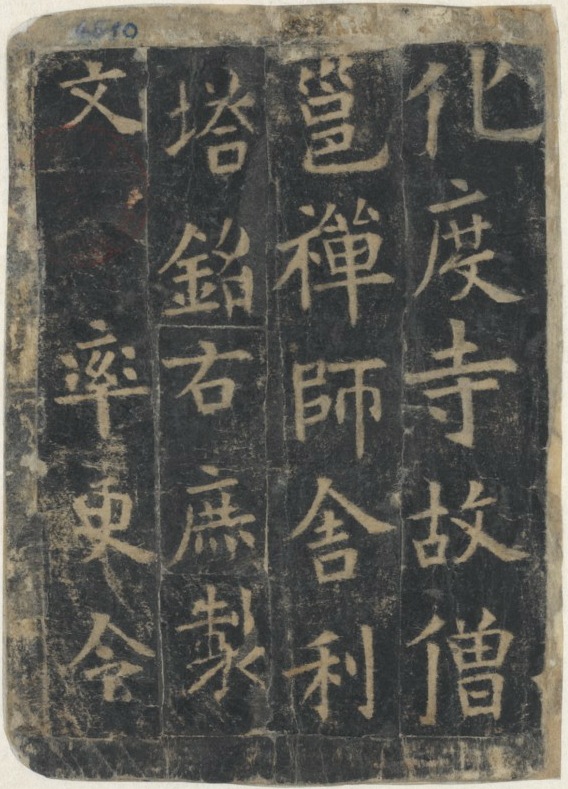 化度寺故僧
邕禪師舍利
塔銘右庶製
文率更令
4510